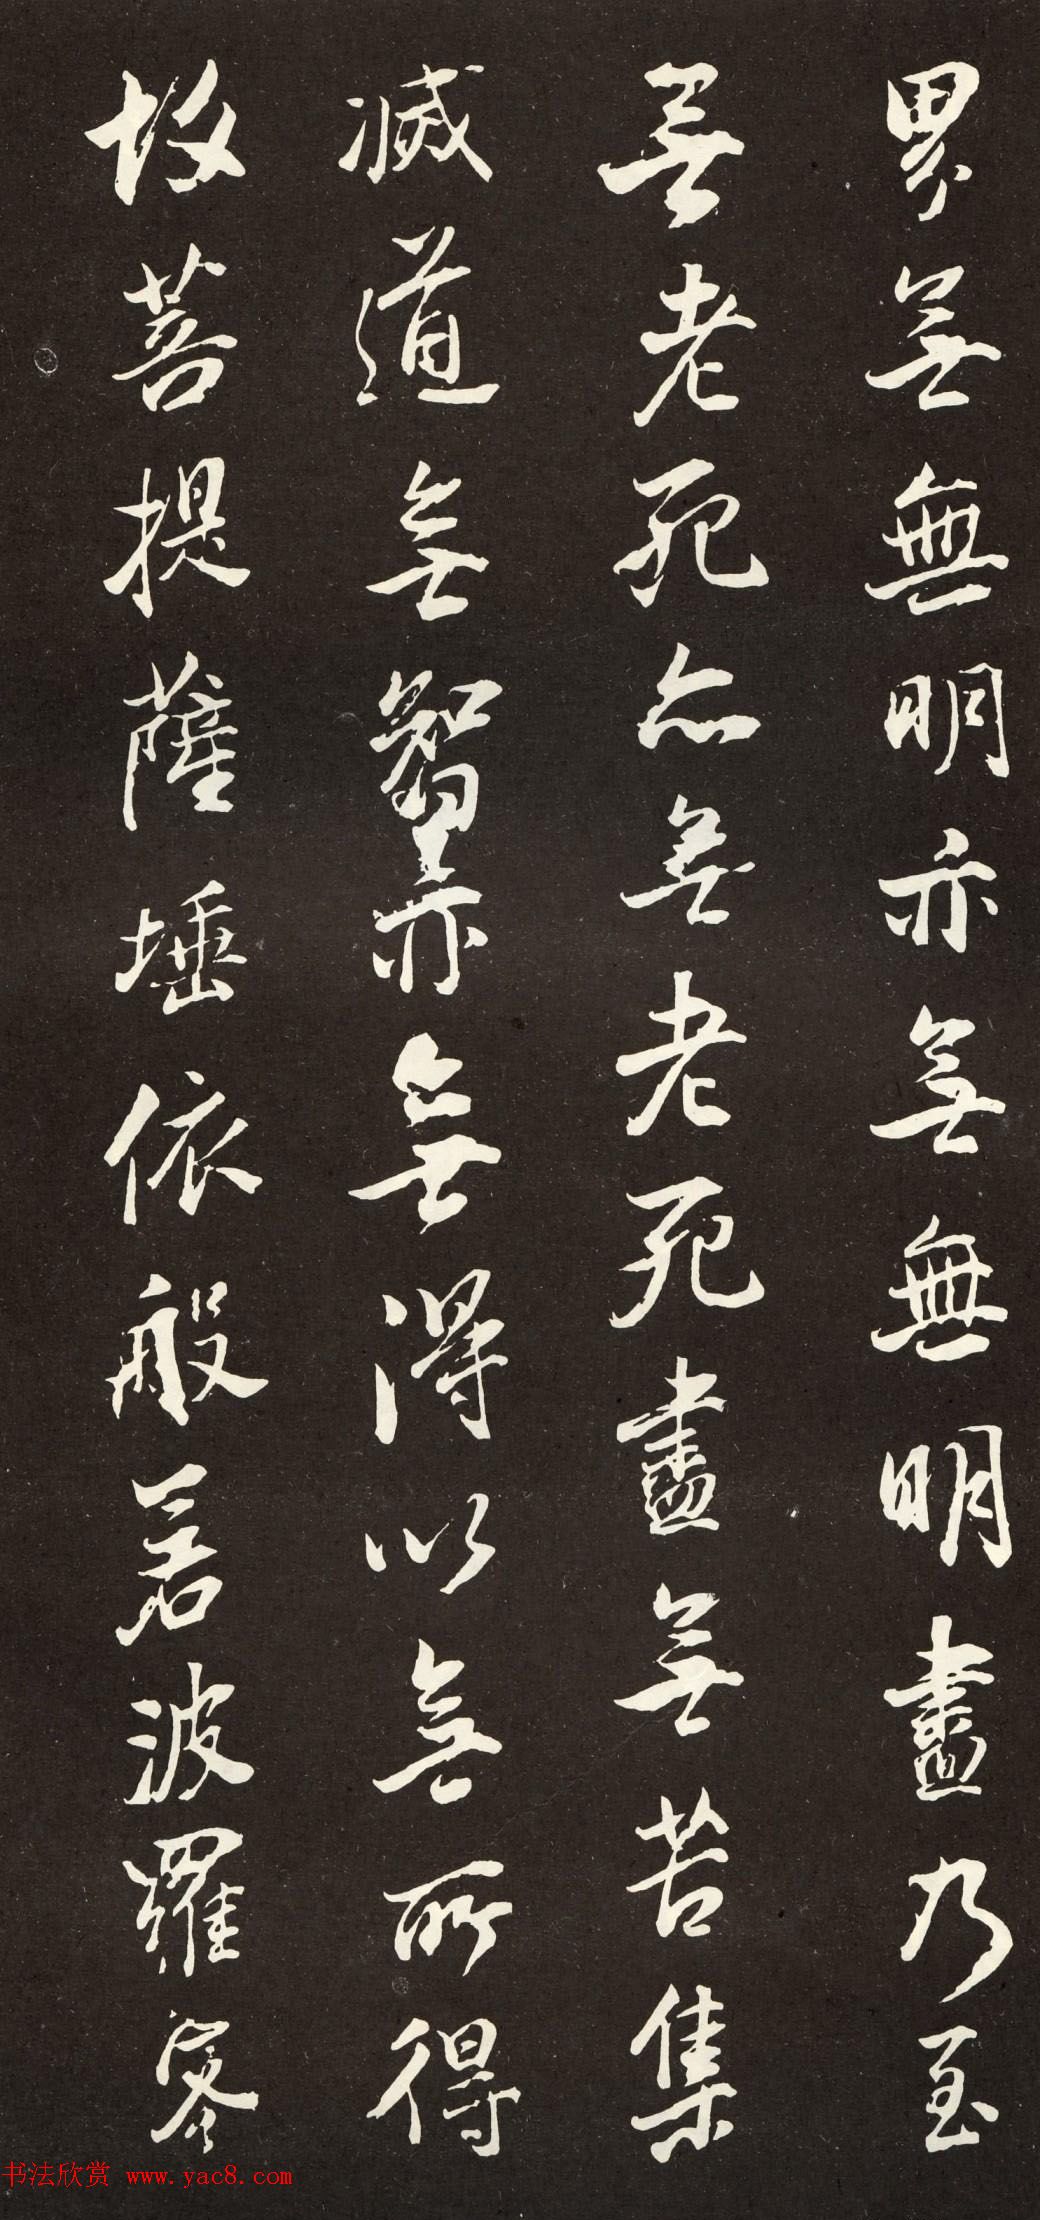 界無無明亦無無明盡乃至
無老死亦無老死盡無苦集
滅道無智亦無得以無所得
故菩提薩埵依般若波羅蜜
书法欣赏 www.yac8.com